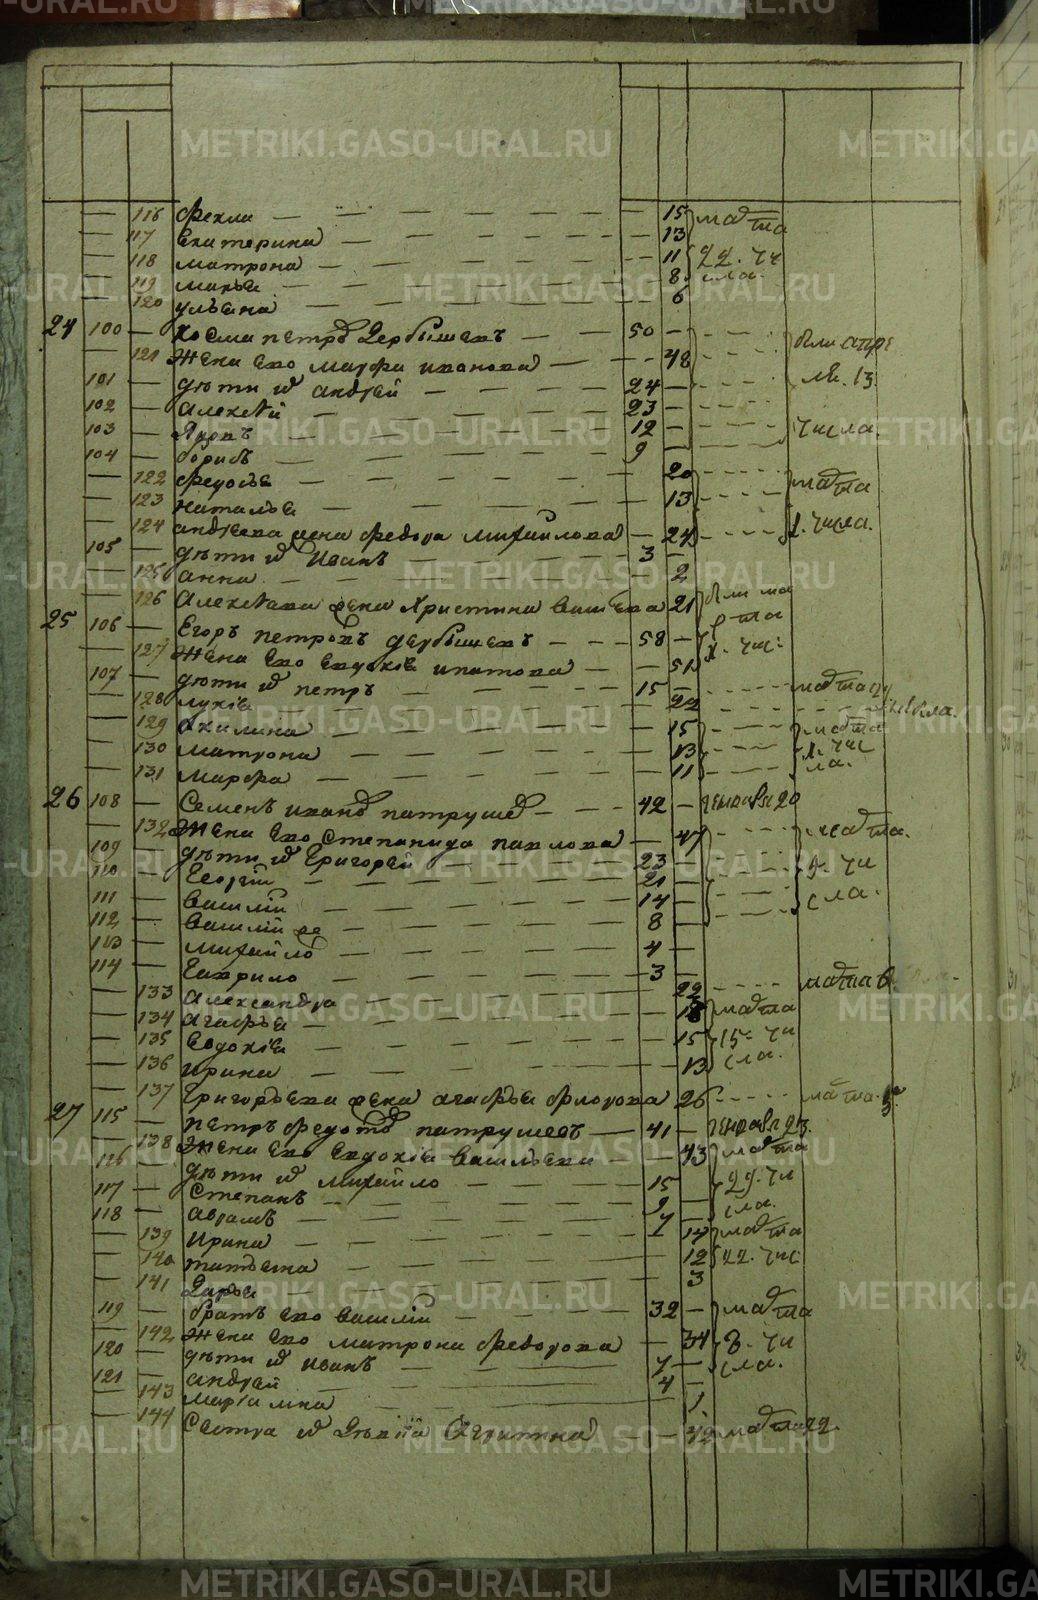 116 Фекла 15 марта
117 Екатерина 13
118 матрона 11 22. чи
119 марья 8 сла.
120 ульяна 6
24 100 Косма петров Дербышевъ 50 были апре
121 Жена ево марфа иванова 48
101 дети их андрей 24 ля. 13
102 Алексей 23
103 12 числа.
104 борисъ 9
122 федосья 20 марта
123 наталья 13
124 андреева жена федора михайлова 24 числа.
105 дети их Иванъ 3
125 анна 2
126 Алексеева жена Христина 21 были ма
25 106 Егоръ петровъ дербышевъ 58 рта
127 Жена ево евдокия ипатова 51 чис:
107 дети их петръ 15 марта
128 лукия 22
129 Акилина 15 марта
130 матрона 13 чис
131 марфа 11 ла.
26 108 Семенъ иванов патрушев 42 генваря 20
132 Жена ево степанида павлова 47 марта.
109 дети их Григорей 23 чи
110 Георгий 21
111 василий 14 сла.
112 василий же 8
113 михайло 4
114 Гаврило 3
133 Александра 22 марта
134 агафья 18 марта
135 Евдокия 15 15. чи
136 ирина 13 сла.
137 Григорьева жена агафья флорова 26 марта
27 115 петръ федотов патрушевъ 41 генваря
138 Жена ево евдокия васильева 43 марта
116 дети их михайло 15 чи
117 степанъ 9 сла.
118 аврамъ 7 марта
139 Ирина 14
140 татьяна 12 22. чис
141 Дарья 3
119 братъ ево василий 32 марта
142 Жена ево матрона федорова 34 чи
120 дети их иванъ 7 сла.
121 андрей 4
143 1
144 Сестра их
METRIKI.GASO-URAL.RU